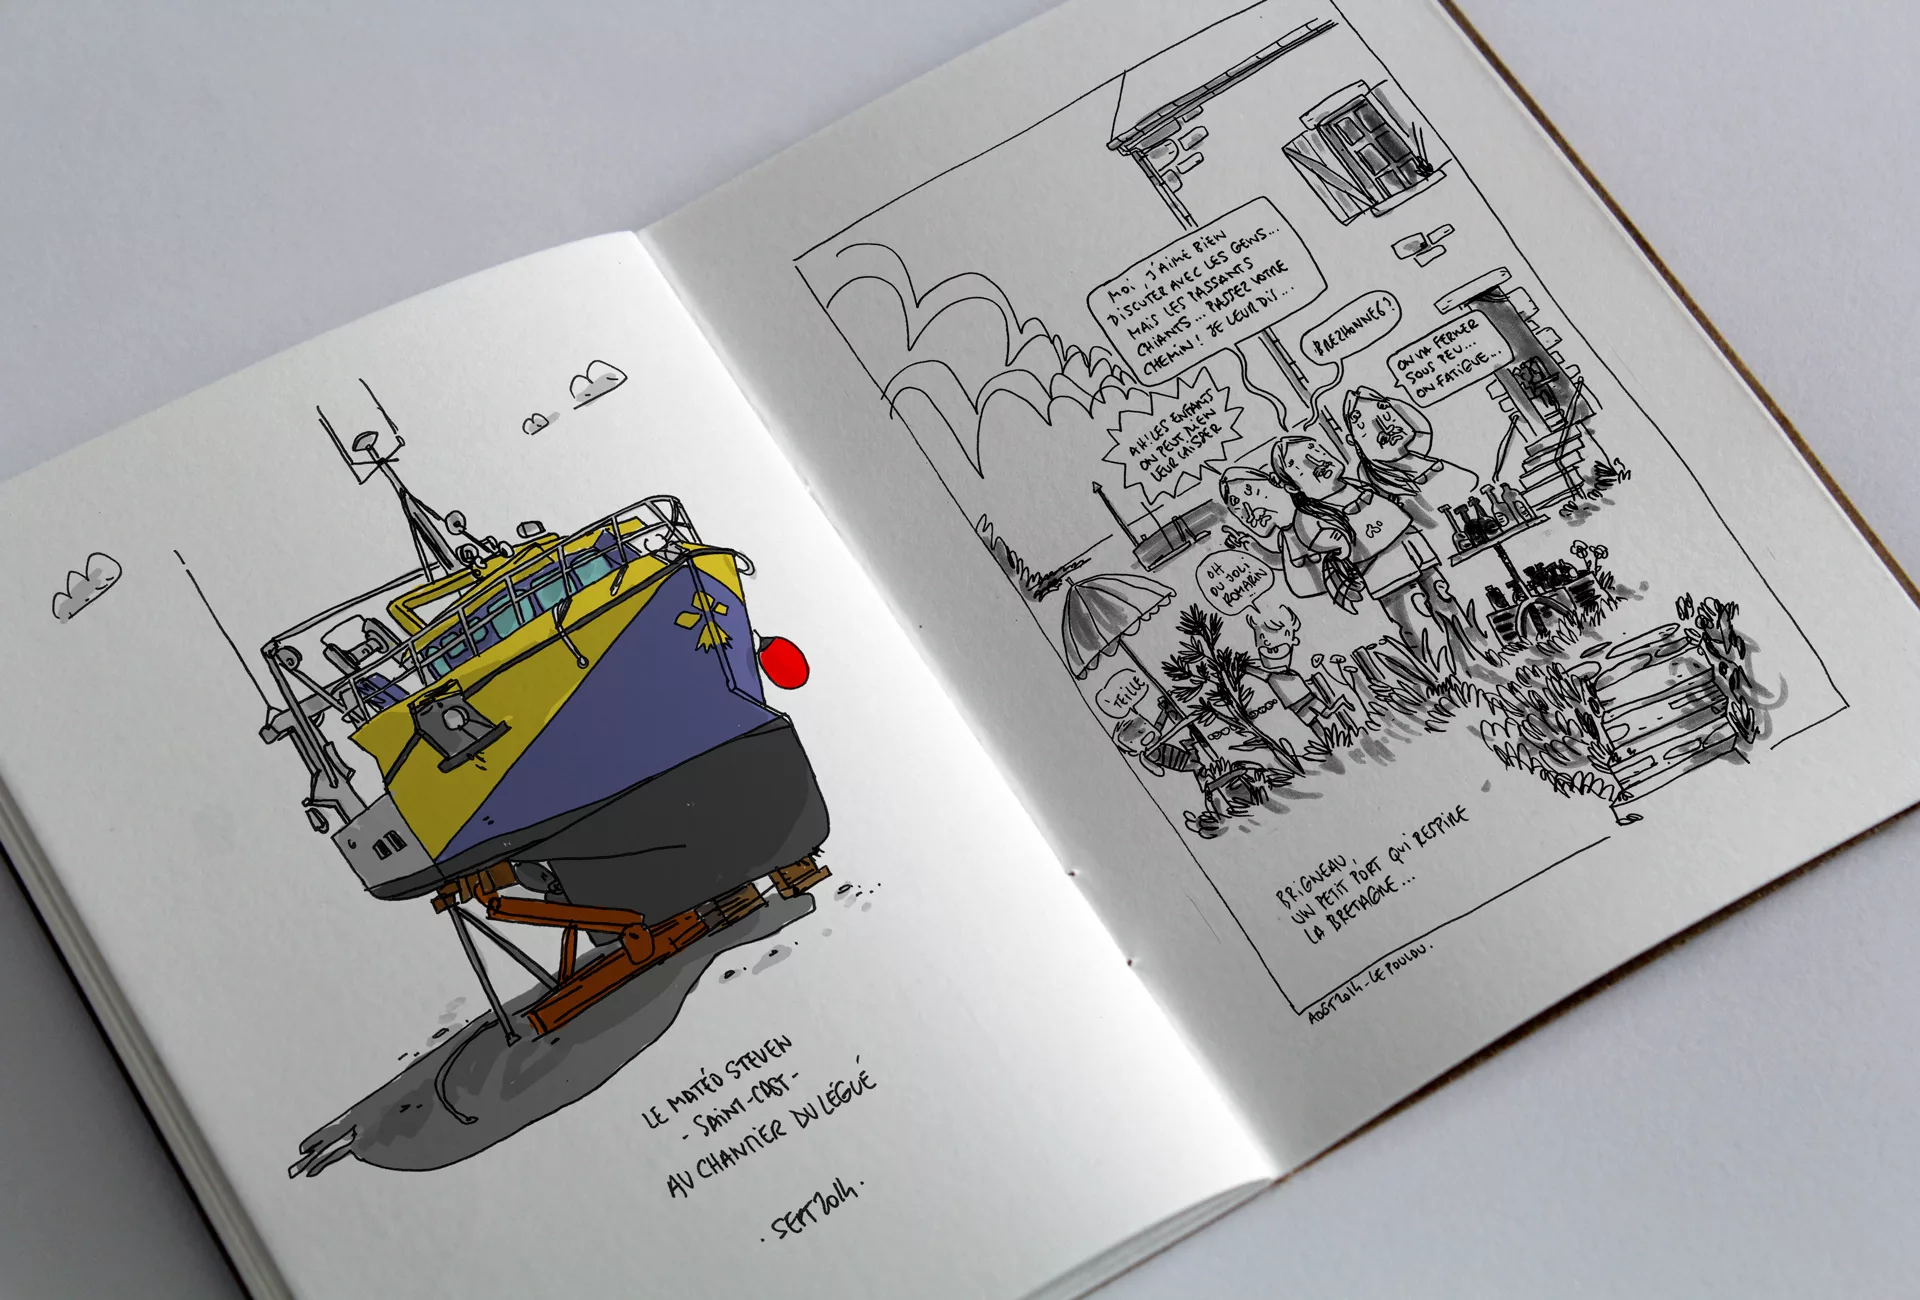 LE MATÉO STEVEN
- SAINT-CAST -
AU CHANTIER DU LÉGUÉ
. SEPT 2014 .
MOI, J'AIME BIEN
DISCUTER AVEC LES GENS...
MAIS LES PASSANTS
CHIANTS... PASSEZ VOTRE
CHEMIN! JE LEUR DIS...
BREZHONNEG?
ON VA FERMER
SOUS PEU...
ON FATIGUE...
AH! LES ENFANTS
ON PEUT RIEN
LEUR LAISSER
OH
DU JOLI
ROMARIN
'TEILLE
BRIGNEAU,
UN PETIT PORT QUI RESPIRE
LA BRETAGNE...
AOST 2014 - LE POULDU.